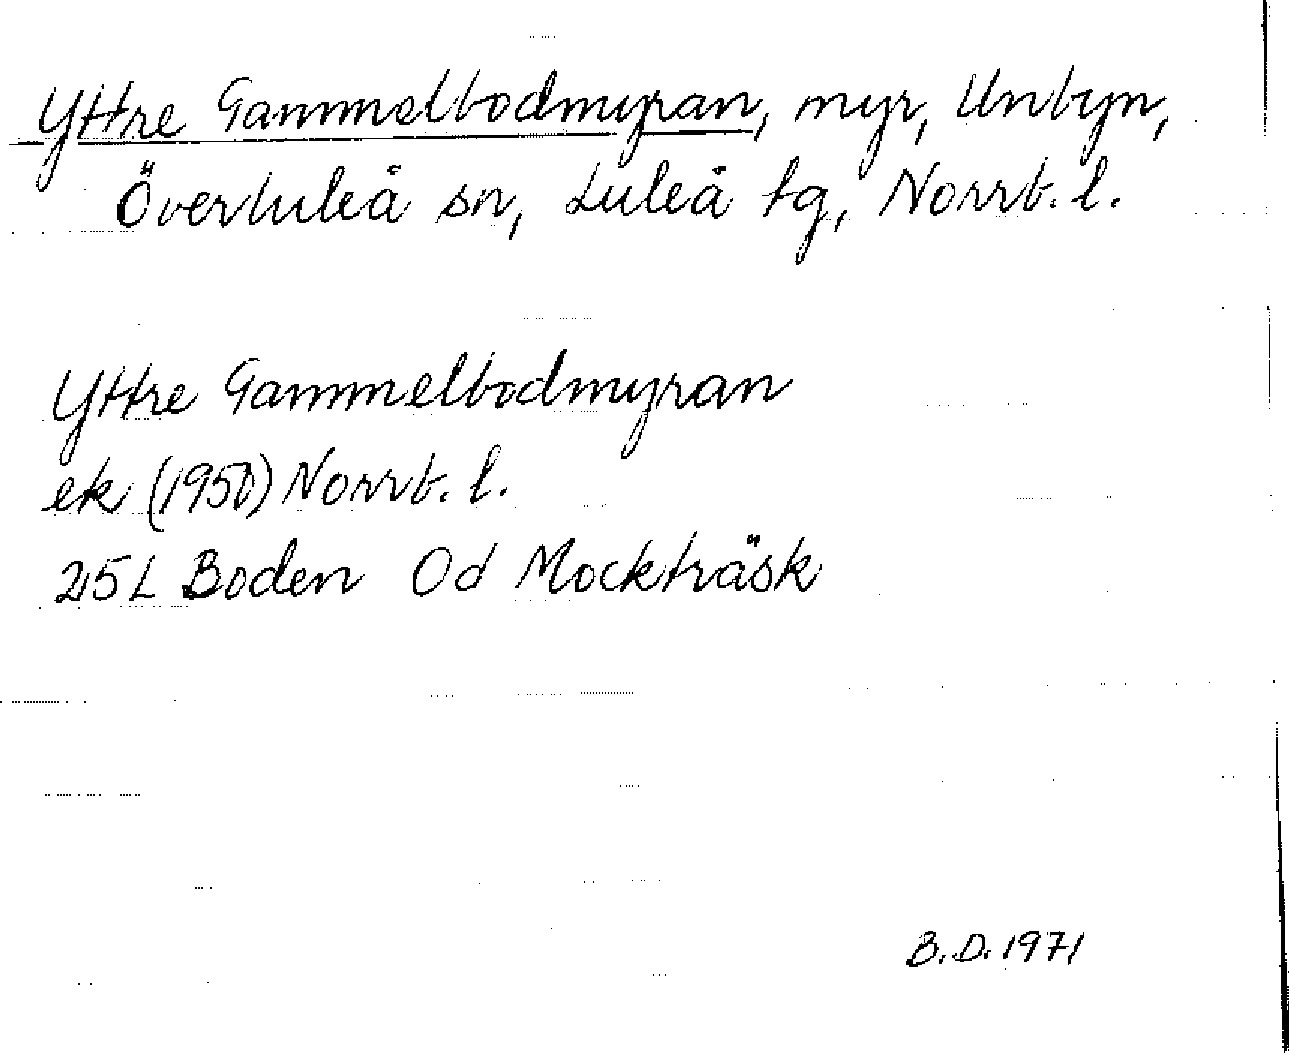 Yttre Gammelbodmyran, myr, Unbyn,
Överluleå sn, Luleå tg, Norrb. l.
Yttre Gammelbodmyran
ek (1950) Norrb. l.
25L Boden Od Mockträsk
B.D. 1971